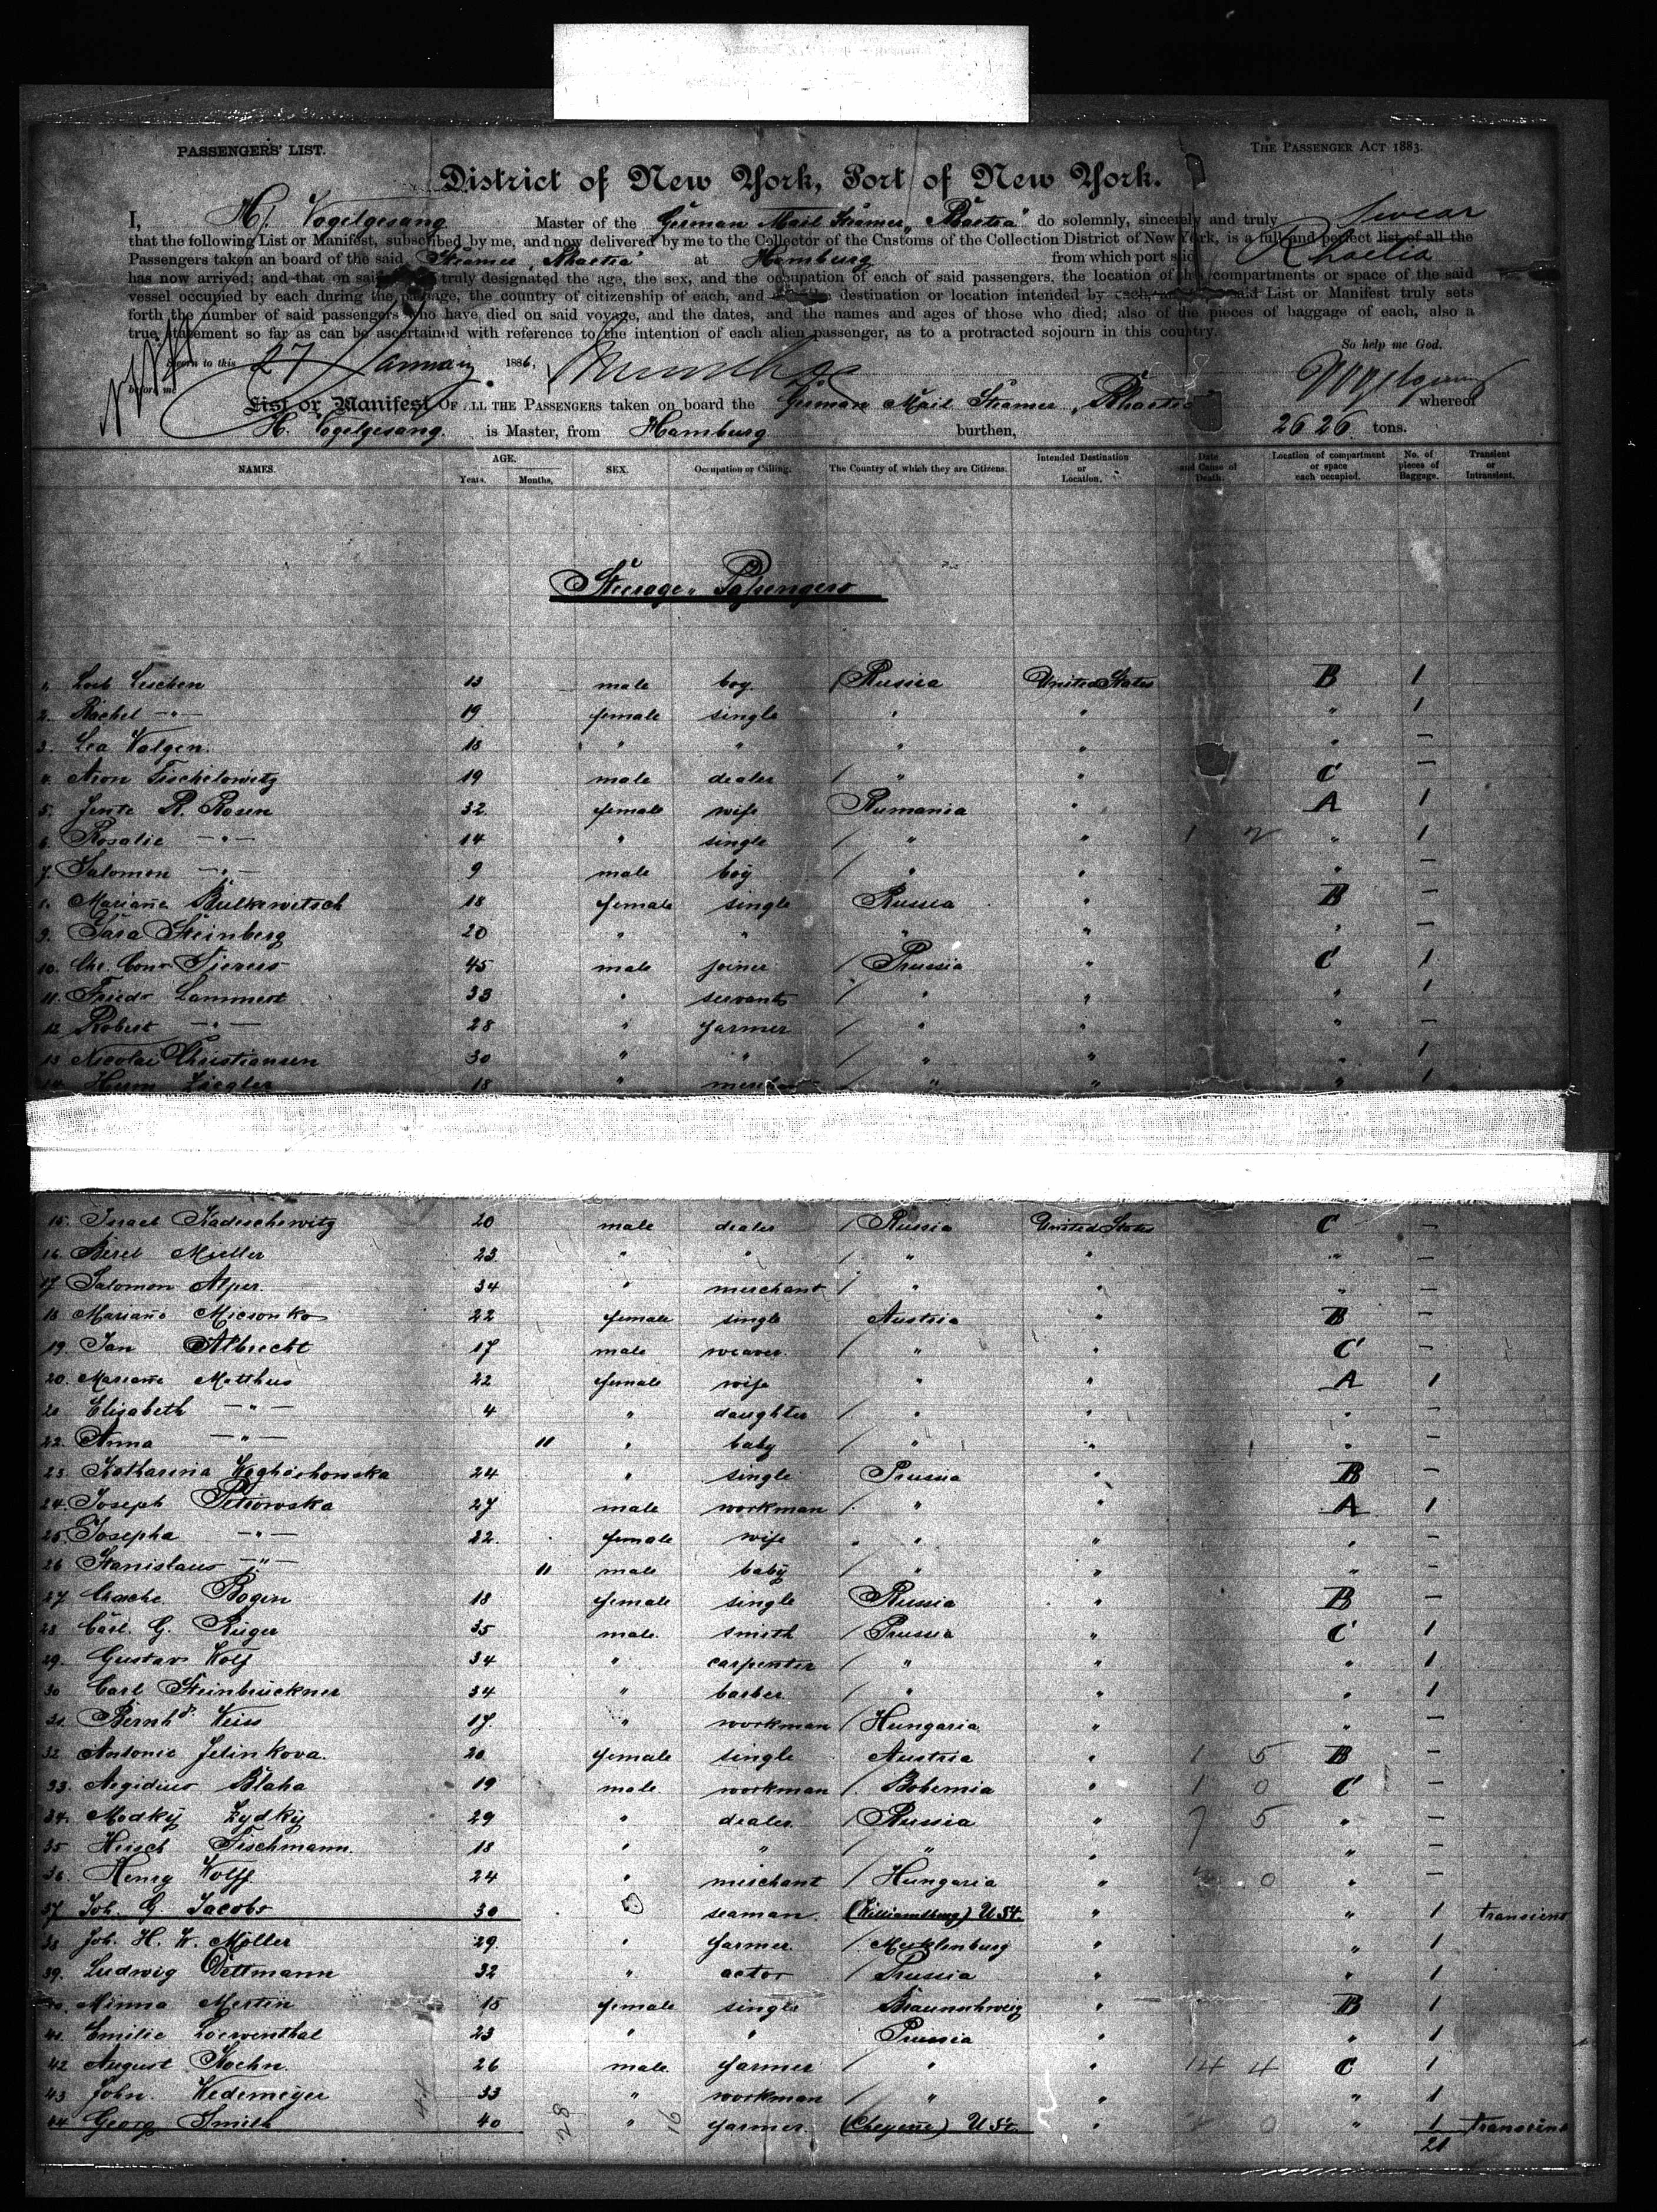 PASSENGERS' LIST.
THE PASSENGER ACT 1883.
District of New York, Port of New York.
I, H. Vogelgesang Master of the German Mail Steamer "Rhaetia" do solemnly, sincerely and truly swear
that the following List or Manifest, subscribed by me, and now delivered by me to the Collector of the Customs of the Collection District of New York, is a full and perfect list of all the
Passengers taken on board of the said Steamer "Rhaetia" at Hamburg from which port said Rhaetia
has now arrived; and that on said truly designated the age, the sex, and the occupation of each of said passengers, the location of the compartments or space of the said
vessel occupied by each during the passage, the country of citizenship of each, and destination or location intended by each, said List or Manifest truly sets
forth the number of said passengers who have died on said voyage, and the dates, and the names and ages of those who died; also of the pieces of baggage of each, also a
true statement so far as can be ascertained with reference to the intention of each alien passenger, as to a protracted sojourn in this country.
So help me God.
Sworn to this 27 January 1886,
before me
Vogelgesang
List or Manifest OF ALL THE PASSENGERS taken on board the German Mail Steamer "Rhaetia" whereof
H. Vogelgesang. is Master, from Hamburg burthen, 2626 tons.
NAMES. AGE. Years. Months. SEX. Occupation or Calling. The Country of which they are Citizens. Intended Destination or Location. Date and Cause of Death. Location of compartment or space each occupied. No. of pieces of Baggage. Transient or Intransient.
Steerage Passengers
1. Leib Leschen 13 male boy. / Russia United States B 1
2. Rachel -"- 19 female single " " " 1
3. Lea Walgen. 18 " " " " " -
4. Aron Fischelowitz 19 male dealer / " " C -
5. Jente R. Rosen 32 female wife Rumania " A 1
6. Rosalie -"- 14 " single / " " 1 2 " 1
7. Salomon -"- 9 male boy / " " " -
8. Marianne Bulkewitsch 18 female single Russia " B -
9. Sara Steinberg 20 " " " " " -
10. Chr. Conr. Sievers 45 male joiner / Prussia " C 1
11. Friedr. Lammert 33 " servant / " " " 1
12. Robert -"- 28 " farmer / " " " -
13 Nicolai Christiansen 30 " " / " " " 1
14. Herm Ziegler 18 " / " " " 1
15. Israel Kadeschewitz 20 male dealer / Russia United States C -
16. Berel Mueller 23. " " / " " " -
17 Salomon Alper. 34 " merchant / " " " -
18 Marianne Micsonko 22 female single Austria " B -
19. Jan Albrecht 17 male weaver. / " " C -
20. Marianne Matthus 22 female wife " " A 1
21 Elisabeth -"- 4 " daughter / " " " -
22. Anna -"- 11 " baby / " " " -
23. Katharina 24 " single Prussia " B -
24. Joseph Petrowska 27 male workman / " " A 1
25. Josepha -"- 22. female wife " " " -
26 Stanislaus -"- 11 male baby / " " " -
27 Chasche Bogin 18 female single Russia " B -
28 Carl. G. Rüger 35 male. smith / Prussia " C 1
29. Gustav Wolf 34 " carpenter / " " " 1
30 Carl Steinbrückner 34 " barber. / " " " 1
31. Bernhd. Weiss 17. " workman / Hungaria " " -
32 Antonie Jelinkova. 20 female single Austria " 1 5 B -
33. Aegidius Blaha 19 male. workman / Bohemia " 1 0 C -
34. Modkÿ Zydkÿ 29 " dealer / Russia " 7 5 " -
35 Hirsch Fischmann. 18 " " / " " " -
36. Henry Wolff. 24 " merchant / Hungaria " 0 " -
37 Joh. G. Jacobs 30 " seaman. (Williamsburg) U St. " " 1 transient
38 Joh. H. W. Möller 29. " farmer. / Mecklenburg " " 1
39. Ludwig Dettmann 32 " actor / Prussia " " 1
40. Minna Mertin 18 female single Braunschweig " B 1
41. Emilie Loewenthal 23 " " Prussia " " 1
42 August Koehn. 26 male. farmer / " " 14 4 C 1
43 John. Wedemeÿer 33 " workman / " " " 1
44 Georg Smith 40 " farmer. (Cheyene) U St. " 0 " 1 transient
44 28 16 21